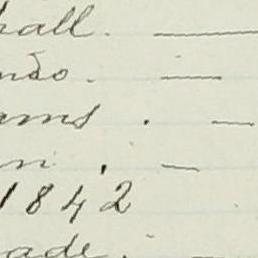 hall. —
não. —
ams. —
n. —
1842
ade. —